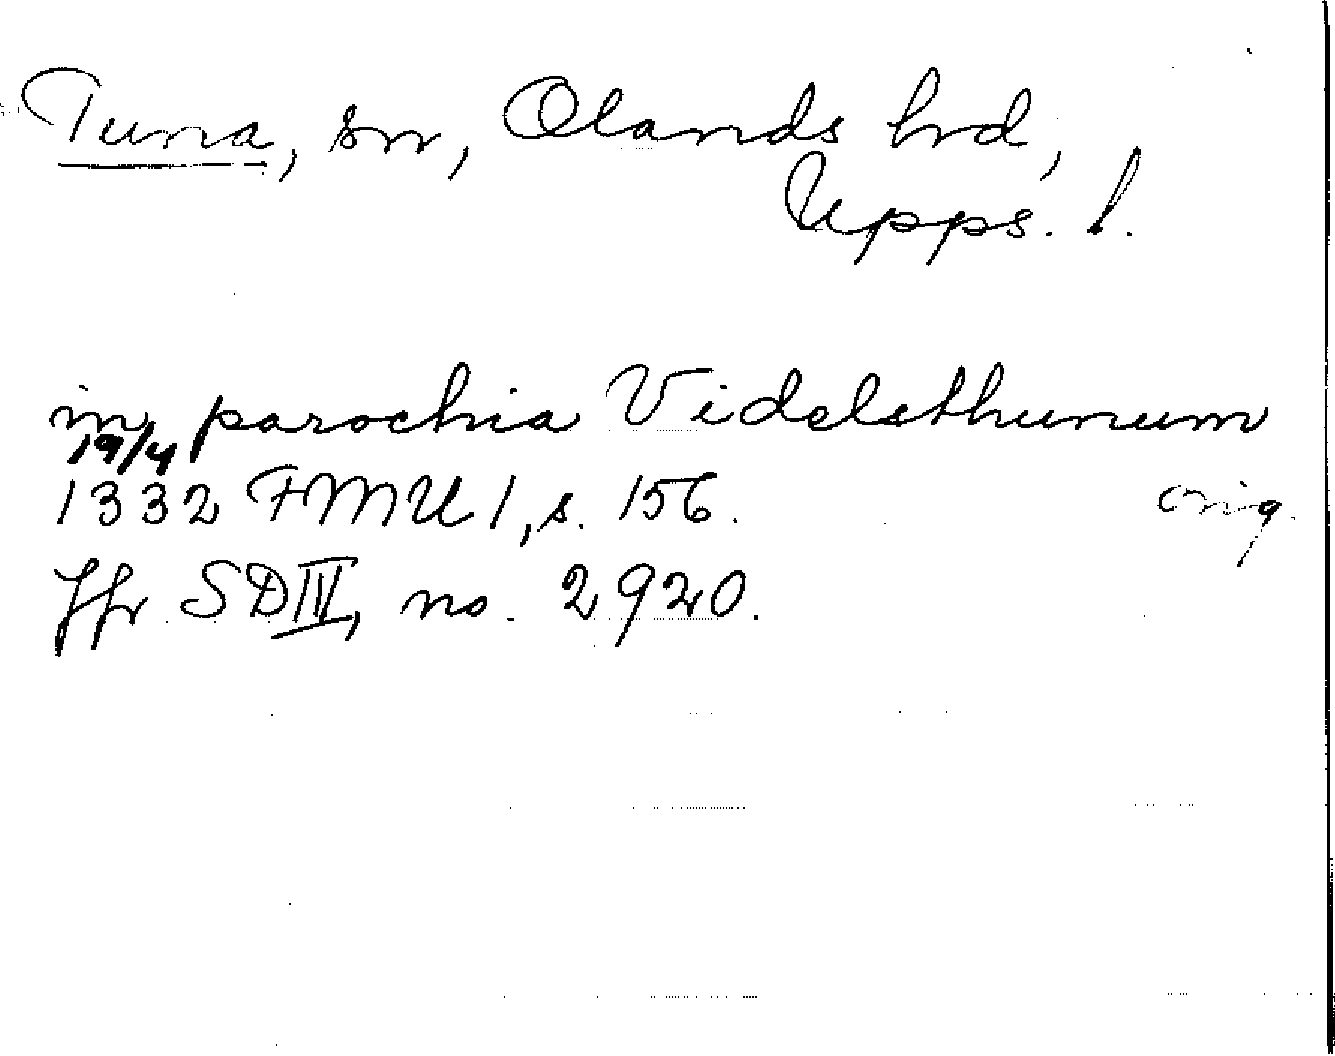 Tuna, sn, Olands hrd,
Upps. l.
in parochia Videlsthunum
19/4
1332 FMU 1, s. 156. orig.
Jfr SD IV, no. 2920.